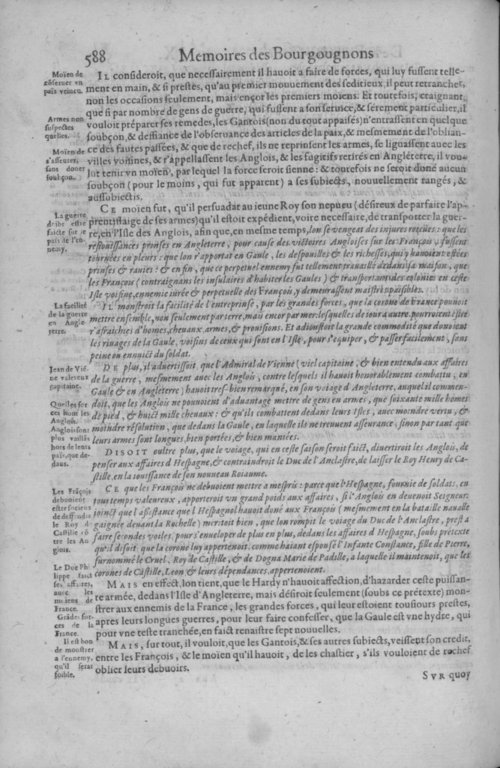 588 Memoires des Bourgougnons
Moïen de
cõseruer vn
païs veincu.
Armes non
suspectes
quelles.
Moïen de
s'asseurer,
sans doner
soubçon.
IL consideroit, que necessairement il hauoit a faire de forces, qui luy fussent telle-
ment en main, & si prestes, qu'au premier mouuement des seditieux il peut retrancher,
non les occasions seulement, mais encor les premiers moïens. Et toutefois, craignant,
que si par nombre de gens de guerre, qui fussent a son seruice, & serement particulier, il
vouloit preparer ses remedes, les Gantois (non du tout appaisés) n'entrassent en quelque
soubçon, & desfiance de l'obseruance des articles de la paix, & mesmement de l'oblian-
ce des fautes passées, & que de rechef, ils ne reprinsent les armes, se lignassent auec les
villes voisines, & r'appellassent les Anglois, & les fugitifs retirés en Angléterre, il vou-
lut tenir vn moïen, par lequel la force seroit sienne: & toutefois ne seroit doné aucun
soubçon (pour le moins, qui fut apparent) a ses subiects, nouuellement rangés, &
aussubiectis.
La guerre
dribe estre
faicte sur le
païs de l'en-
nemy.
CE moïen fut, qu'il persuadat au ieune Roy son nepueu (désireux de parfaire l'ap-
prentissaige de ses armes) qu'il estoit expédient, voire necessaire, de transpotter la guer-
re, en l'Isle des Anglois, afin que, en mesme temps, lon se vengeat des iniures reçues: que les
résiouissances prinses en Angleterre, pour cause des victoires Angloises sur les François, fussent
tournées en pleurs: que lon r'apportat en Gaule, les despouilles & les richesses, qui y hauoient estées
prinses & rauies: & en fin, que ce perpetuel ennemy fut tellement trauaillé dedans sa maison, que
les François (contraignans les insulaires d'habiter les Gaules) & transportans des colonies en ceste
Isle voisine, ennemie iurée & perpetuelle des François, y demeurassent maistres paisibles.
La facilité
de la guerre
en Angle-
terre.
IL monstroit la facilité de l'entreprinse, par les grandes forces, que la corone de France pouuoit
mettre ensemble, non seulement par terre, mais encor par mer: lesquelles de iour a autre, pourroient estre
r'afraichies d'homes, cheuaux, armes, & prouisions. Et adioustoit la grande commodité que donoient
les riuages de la Gaule, voisins de ceux qui sont en l'Isle, pour s'equiper, & passer facilement, sans
peine ou ennuict du soldat.
Jean de Viẽ
ne valeureux
capitaine.
Quelles for
ces hont les
Anglois.
Anglois sont
plus vaillãs
hors de leurs
païs, que de-
dans.
DE plus, il aduertissoit, que l'Admiral de Vienne (viel capitaine, & bien entendu aux affaires
de la guerre, mesmement auec les Anglois, contre lesquels il hauoit honorablement combattu, en
Gaule & en Angleterre) hauoit tres-bien remarqué, en son voïage d'Angleterre, auquel il commen-
doit, que les Anglois ne pouuoient d'auantage mettre de gens en armes, que soixante mille homes
de pied, & huict mille cheuaux: & qu'ils combattent dedans leurs Isles, auec moindre vertu, &
moindre résolution, que dedans la Gaule, en laquelle ils ne treuuent asseurance, sinon par tant que
leurs armes sont longues, bien portées, & bien maniées.
DISOIT oultre plus, que le voïage, qui en ceste saison seroit faict, diuertiroit les Anglois, de
penser aux affaires d'Hespagne, & contraindroit le Duc de l'Anclastre, de laisser le Roy Henry de Ca-
stille, en la iouissance de son nouueau Roïaume.
Les Frãçois
debuoient
estre soucieux
de defendre
le Roy de
Castille cõ-
tre les An-
glois.
Le Duc Phi
lippe faict
ses affaires,
auec les
moïens de
France.
CE que les François ne debuoient mettre a mespris: parce que l'Hespagne, fournie de soldats, en
tout temps valeureux, apporteroit vn grand poids aux affaires, si l'Anglois en deuenoit Seigneur:
ioinct que l'assistance que l'Hespagnol hauoit doné aux François (mesmement en la bataille naualle
gaignée deuant la Rochelle) meritoit bien, que lon rompit le voïage du Duc de l'Anclastre, prest a
faire sa ondes voiles. pour s'enuelopper de plus en plus, dedans les affaires d'Hespagne, soubs prétexte
qu'il disoit que la corone luy appertenoit, comme haïant espousé l'Infante Constance, fille de Pierre,
surnommé le Cruel, Roy de Castille, & de Dogna Marie de Padille, a laquelle il maintenoit, que les
corones de Castille, Leon & leurs dépendances, appertenoient.
Grãdes for-
ces de la
France.
MAIS en effect, lon tient, que le Hardy n'hauoit affection, d'hazarder ceste puissan-
te armée, dedans l'Isle d'Angleterre, mais désiroit seulement (soubs ce prétexte) mon-
strer aux ennemis de la France, les grandes forces, qui leur estoient tousiours prestes,
apres leurs longues guerres, pour leur faire confesser, que la Gaule est vne hydre, qui
pout vne teste tranchée, en faict renaistre sept nouuelles.
Il est bon
de monstrer
a l'ennemy,
qu'il seras
foible.
MAIS, sur tout, il vouloit, que les Gantois, & ses autres subiects, veissent son credit,
entre les François, & le moïen qu'il hauoit, de les chastier, s'ils vouloient de rechef
oblier leurs debuoirs.
SVR quoy